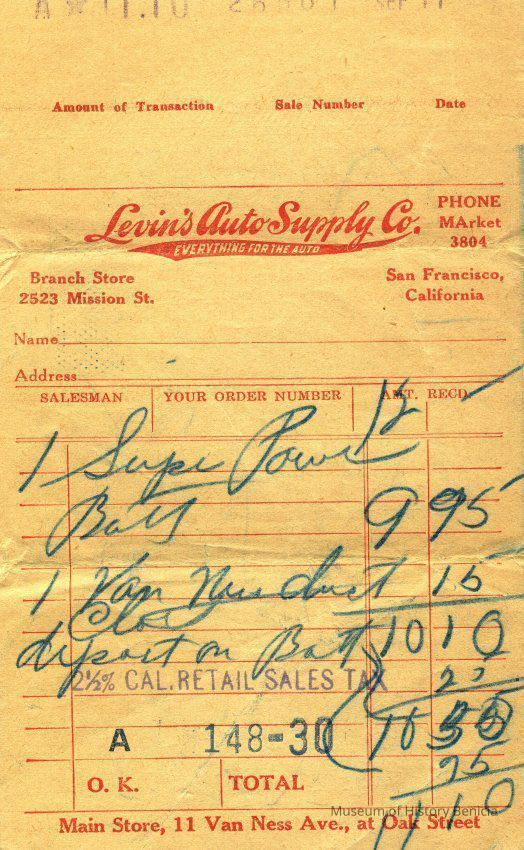 A 11.10 SEP 11
Amount of Transaction Sale Number Date
Levin's Auto Supply Co.
EVERYTHING FOR THE AUTO
PHONE
MArket
3804
Branch Store
2523 Mission St.
San Francisco,
California
Name
Address
SALESMAN YOUR ORDER NUMBER AMT. RECD.
12
1 Supe Power
Batt 9 95
1 Van Ness dust 15
Clo 10 10
deposit on Batt
2½% CAL. RETAIL SALES TAX 25
A 148-30 10
75
O. K. TOTAL 11 10
Museum of History Benicia
Main Store, 11 Van Ness Ave., at Oak Street